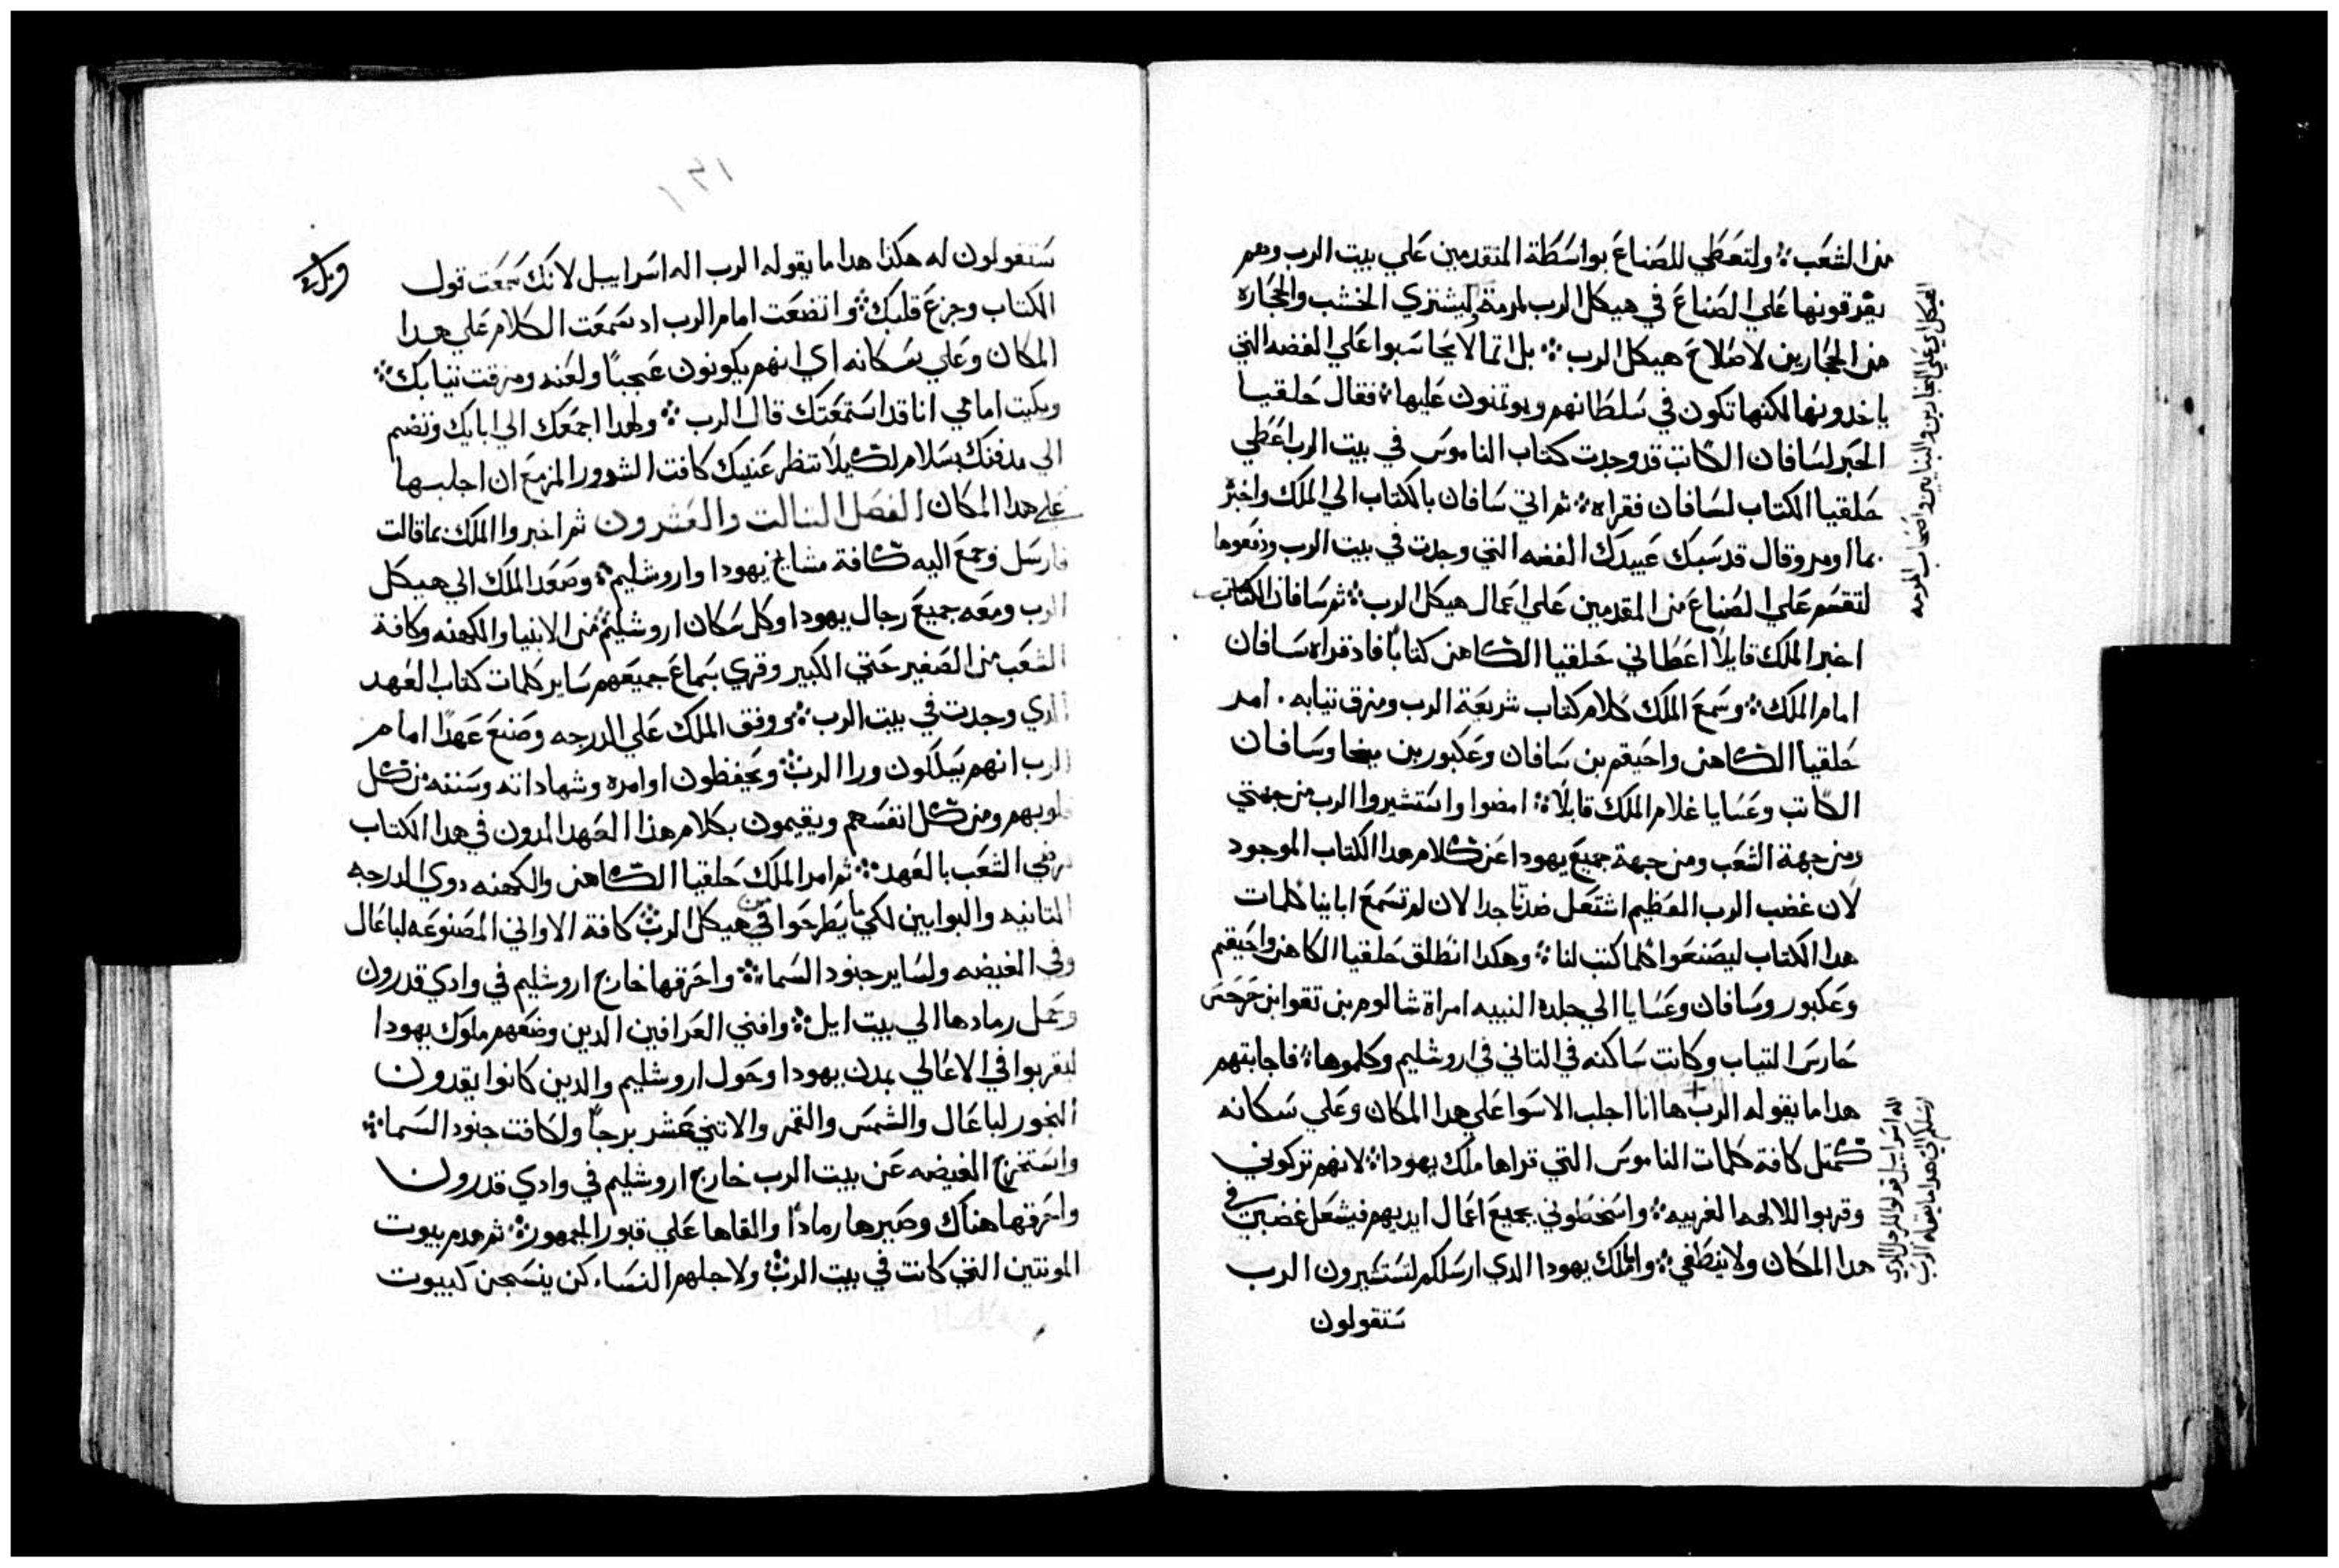 من الشعب ولتعطي للصناع بواسطة المتقدمين علي بيت الرب وهم
يفرقونها علي الصناع في هيكل الرب لمرمة ليشتري الخشب والحجاره
من الحجارين لاصلاح هيكل الرب بل انما لا يحاسبوا علي الفضه التي
ياخدونها لكنها تكون في سلطانهم ويوتمنون عليها فقال حلقيا
الحبر لسافان الكاتب قد وجدت كتاب الناموس في بيت الرب اعطي
حلقيا الكتاب لسافان فقراه ثم اتي سافان بالكتاب الي الملك واخبر
بما اومر وقال قد سبك عبيدك الفضه التي وجدت في بيت الرب ودفعوها
لتقسم علي الصناع من المقدمين علي اعمال هيكل الرب ثم سافان الكاتب
اخبر الملك قايلا اعطاني حلقيا الكاهن كتابا فاد قراه سافان
امام الملك وسمع الملك كلام كتاب شريعة الرب ومزق تيابه . امر
حلقيا الكاهن واحيقم بن سافان وعكبور بن ميخا وسافان
الكاتب وعسايا غلام الملك قايلا امضوا واستشيروا الرب من جهتي
ومن جهة الشعب ومن جهة جميع يهودا عن كلام هدا الكتاب الموجود
لان غضب الرب العظيم اشتعل ضدنا جدا لان لم تسمع اباينا كلمات
هدا الكتاب ليصنعوا كلما كتب لنا وهكدا انطلق حلقيا الكاهن واحيقم
وعكبور وسافان وعسايا الي جلده النبيه امراة شالوم بن تقوا ابن حرحس
حارس التياب وكانت ساكنه في التاني في اروشليم وكلموها فاجابتهم
هدا ما يقوله الرب ها انا اجلب الاسوا علي هدا المكان وعلي سكانه
كمتل كافة كلمات الناموس التي قراها ملك يهودا لانهم تركوني
وقربوا للالهه الغريبه واسخطوني بجميع اعمال ايديهم فيشعل غضبي في
هدا المكان ولا ينطفي واما لملك يهودا الدي ارسلكم لتستشيرون الرب
ستقولون
الهيكل اي علي النجارين والبنايين واصحاب المرمه
اله اسراييل قولوا للرجل الدي
ارسلكم الي هدا ما يقوله الرب
١٣١
ستقولون له هكذا هدا ما يقوله الرب اله اسراييل لانك سمعت قول
الكتاب وجزع قلبك واتضعت امام الرب اد سمعت الكلام علي هدا
المكان وعلي سكانه اي انهم يكونون عجبا ولعنه ومزقت تيابك
وبكيت امامي انا قد استمعتك قال الرب ولهدا اجمعك الي ابايك وتنضم
الي مدفنك بسلام لكيلا تنظر عنيك كافت الشرور المزمع ان اجلبها
علي هدا المكان الفصل التالت والعشرون ثم اخبروا الملك بما قالت
فارسل وجمع اليه كافة مشايخ يهودا واروشليم وصعد الملك الي هيكل
الرب ومعه جميع رجال يهودا وكل سكان اروشليم من الانبيا والكهنه وكافة
الشعب من الصغير حتي الكبير وقري بسماع جميعهم ساير كلمات كتاب العهد
الدي وجدت في بيت الرب ووقف الملك علي الدرجه وصنع عهدا امام
الرب انهم يسلكون ورا الرب ويحفظون اوامره وشهاداته وسننه من كل
قلوبهم ومن كل انفسهم ويقيمون بكلام هذا العهد المدون في هدا الكتاب
فرضي الشعب بالعهد ثم امر الملك حلقيا الكاهن والكهنه دوي الدرجه
التانيه والبوابين لكي يطرحوا من هيكل الرب كافة الاواني المصنوعه لباعال
وفي الغيضه ولساير جنود السما واحرقها خارج اروشليم في وادي قدرون
وحمل رمادها الي بيت ايل وافني العرافين الدين وضعهم ملوك يهودا
ليقربوا في الاعالي بمدن يهودا وحول اروشليم والدين كانوا يقدون
البخور لباعال والشمس والقمر والاتني عشر برجا ولكافت جنود السما
واستخرج الغيضه عن بيت الرب خارج اروشليم في وادي قدرون
واحرقها هناك وصيرها رمادا والقاها علي قبور الجمهور ثم هدم بيوت
المونتين التي كانت في بيت الرب ولاجلهم النساء كن ينسجن كبيوت